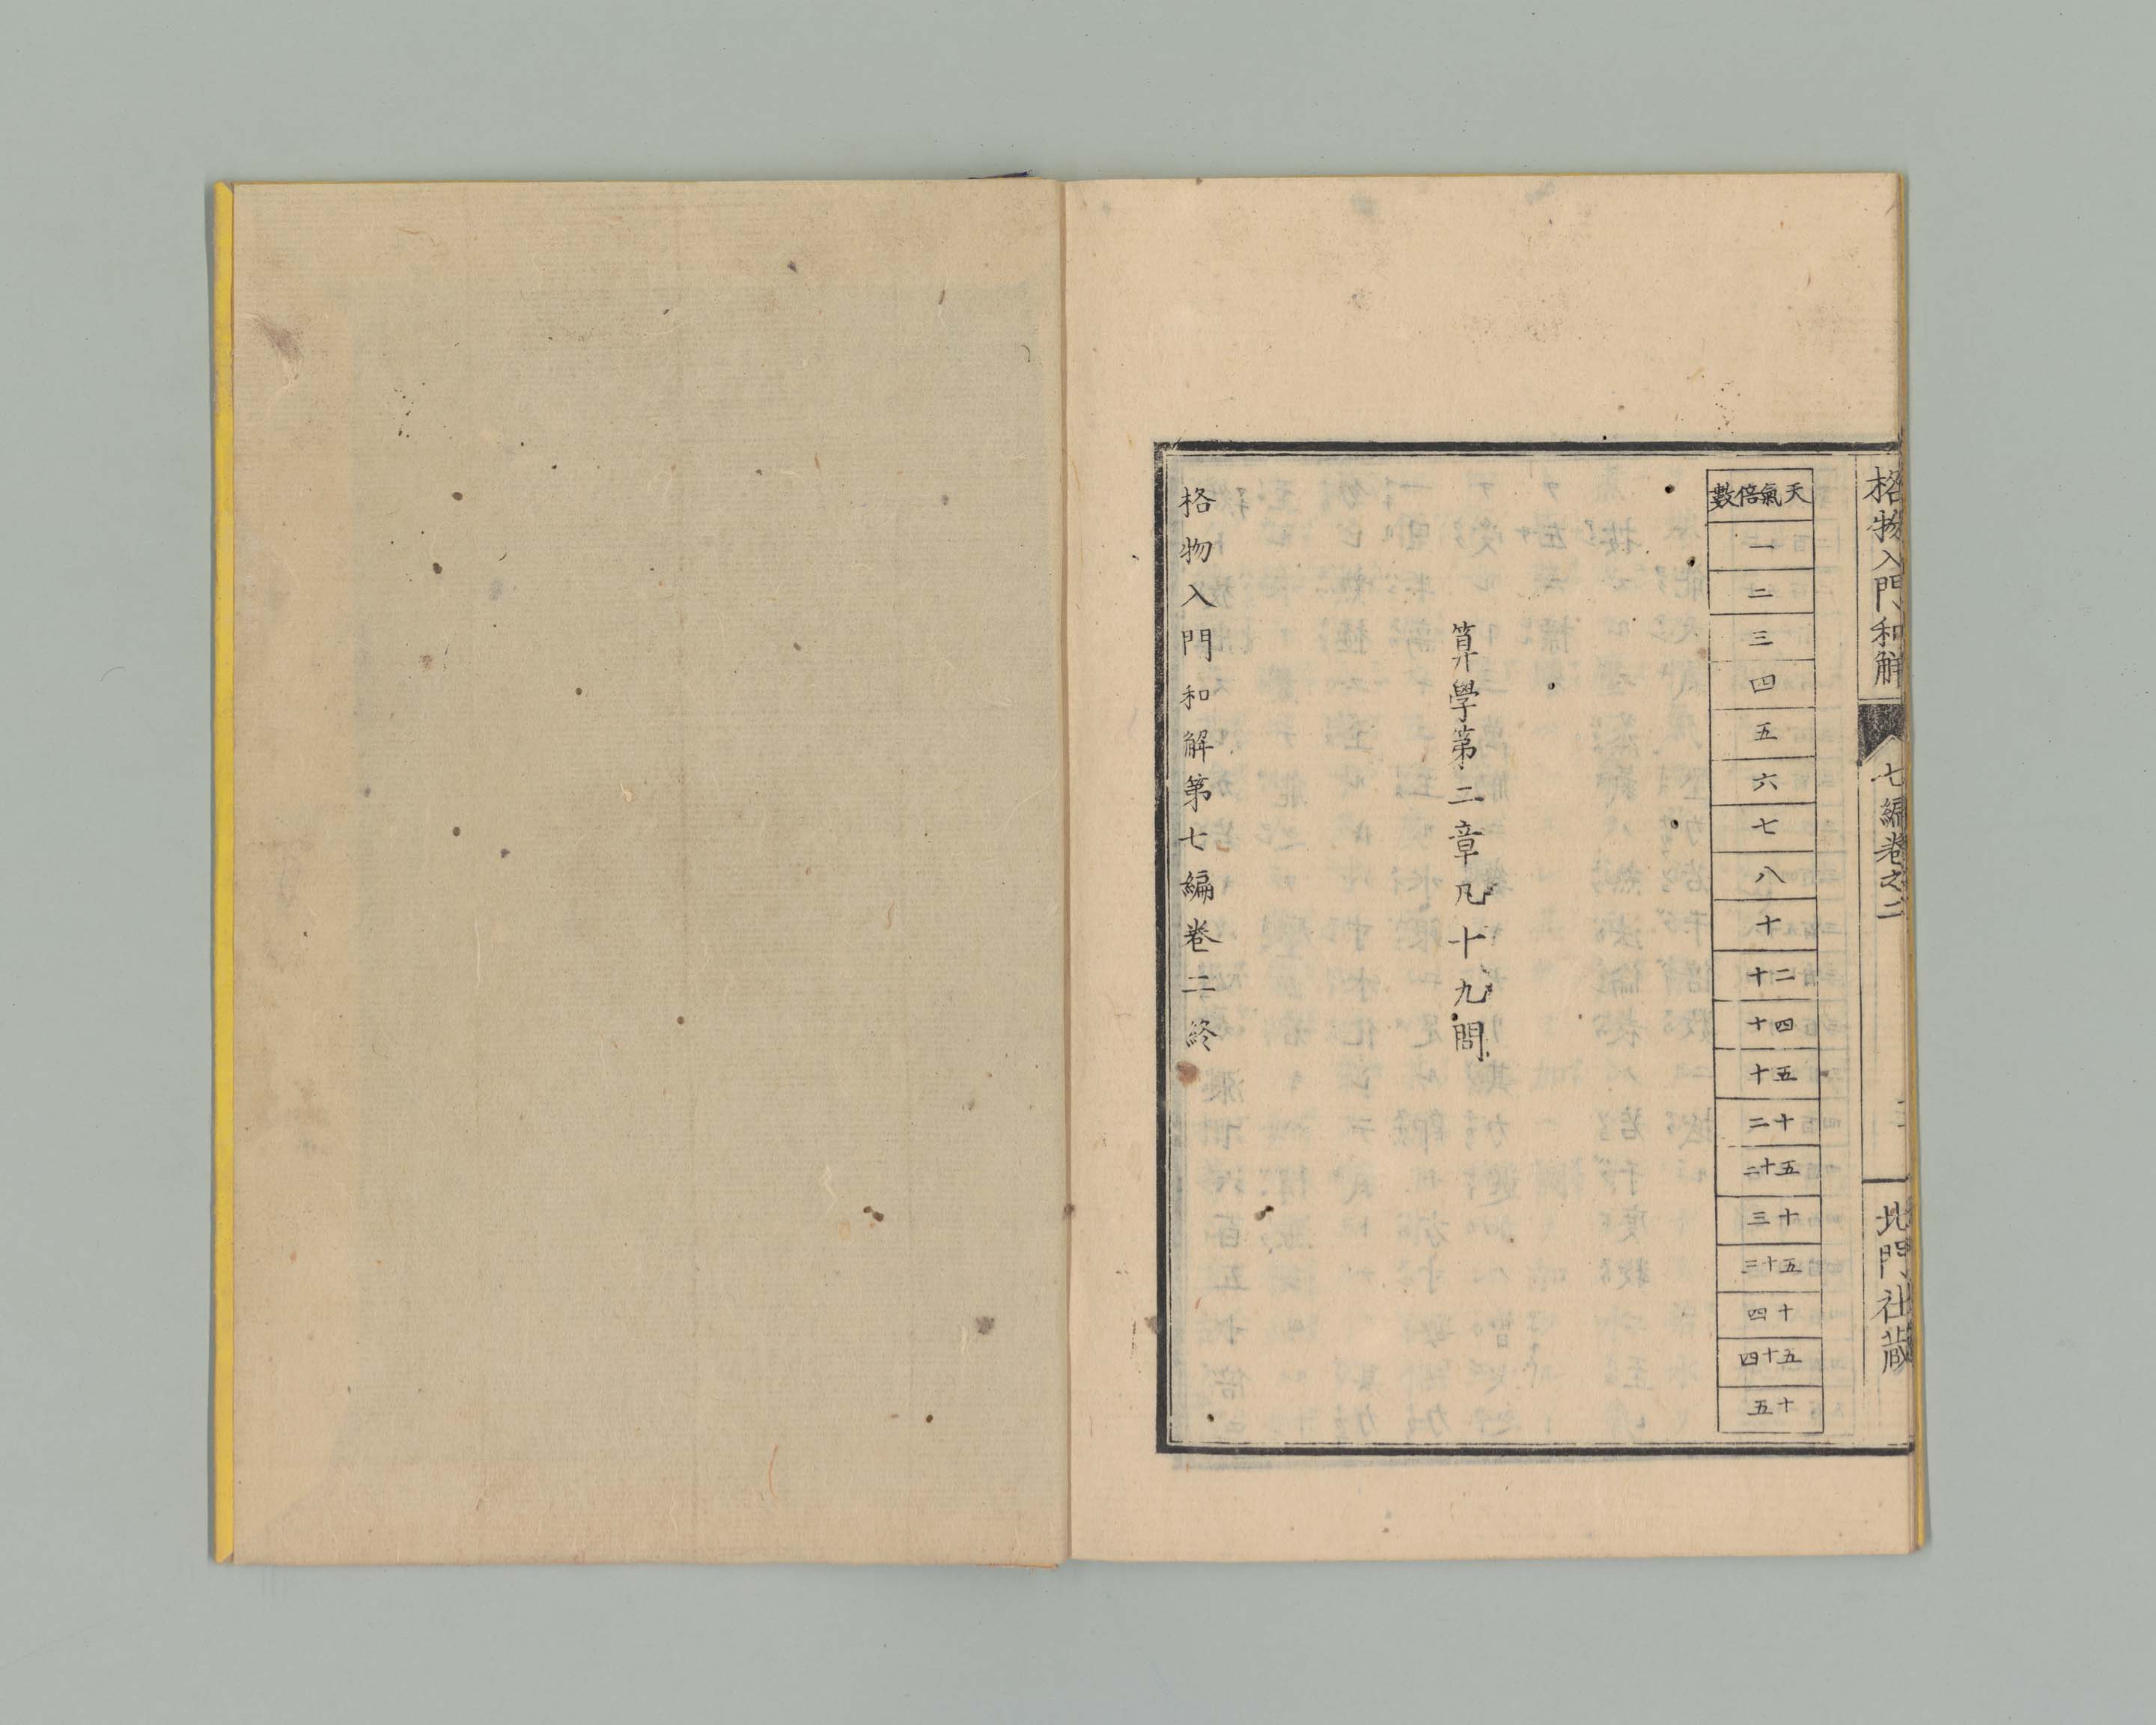 格物入門和解 七編卷之二 北門社藏
天氣倍數
一
二
三
四
五
六
七
八
十
十二
十四
十五
二十
二十五
三十
三十五
四十
四十五
五十
算學第二章凡十九問
格物入門和解第七編卷二終